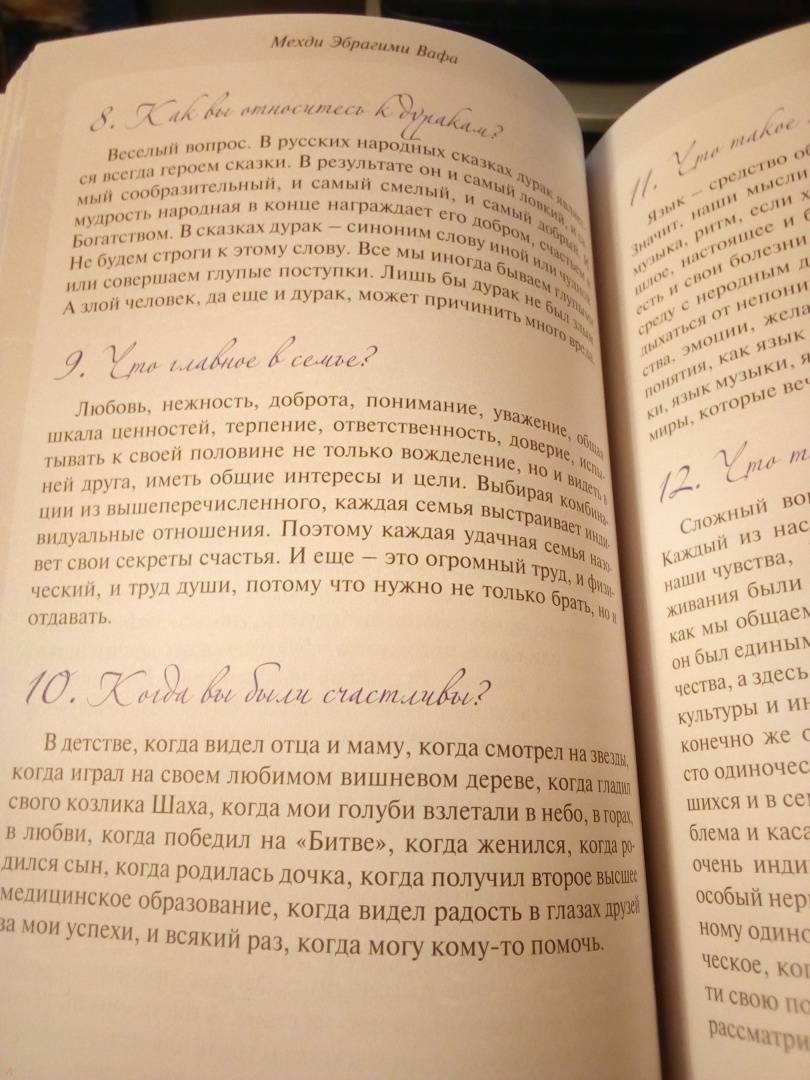 Мехди Эбрагими Вафа
8. Как вы относитесь к дуракам?
Веселый вопрос. В русских народных сказках дурак являет-
ся всегда героем сказки. В результате он и самый ловкий, и са-
мый сообразительный, и самый смелый, и самый добрый. И
мудрость народная в конце награждает его добром, счастьем и
Богатством. В сказках дурак – синоним слову иной или чудной.
Не будем строги к этому слову. Все мы иногда бываем глупыми
или совершаем глупые поступки. Лишь бы дурак не был злым.
А злой человек, да еще и дурак, может причинить много вреда.
9. Что главное в семье?
Любовь, нежность, доброта, понимание, уважение, общая
шкала ценностей, терпение, ответственность, доверие, испы-
тывать к своей половине не только вожделение, но и видеть в
ней друга, иметь общие интересы и цели. Выбирая комбина-
ции из вышеперечисленного, каждая семья выстраивает инди-
видуальные отношения. Поэтому каждая удачная семья назо-
вет свои секреты счастья. И еще – это огромный труд, и физи-
ческий, и труд души, потому что нужно не только брать, но и
отдавать.
10. Когда вы были счастливы?
В детстве, когда видел отца и маму, когда смотрел на звезды,
когда играл на своем любимом вишневом дереве, когда гладил
свого козлика Шаха, когда мои голуби взлетали в небо, в горах,
в любви, когда победил на «Битве», когда женился, когда ро-
дился сын, когда родилась дочка, когда получил второе высшее
медицинское образование, когда видел радость в глазах друзей
за мои успехи, и всякий раз, когда могу кому-то помочь.
11. Что такое
Язык – средство об
значит, наши мысли
музыка, ритм, если х
шлое, настоящее и б
есть и свои болезни
среду с неродным д
дыхаться от непони
ства, эмоции, жела
понятия, как язык
ки, язык музыки, я
миры, которые веч
12. Что т
Сложный воп
Каждый из нас
наши чувства,
живания были
как мы общаем
он был единым
чества, а здесь
культуры и ин
конечно же о
сто одиночес
шихся и в сем
блема и каса
очень инди
особый нер
ному одино
ческое, ког
ти свою по
рассматри